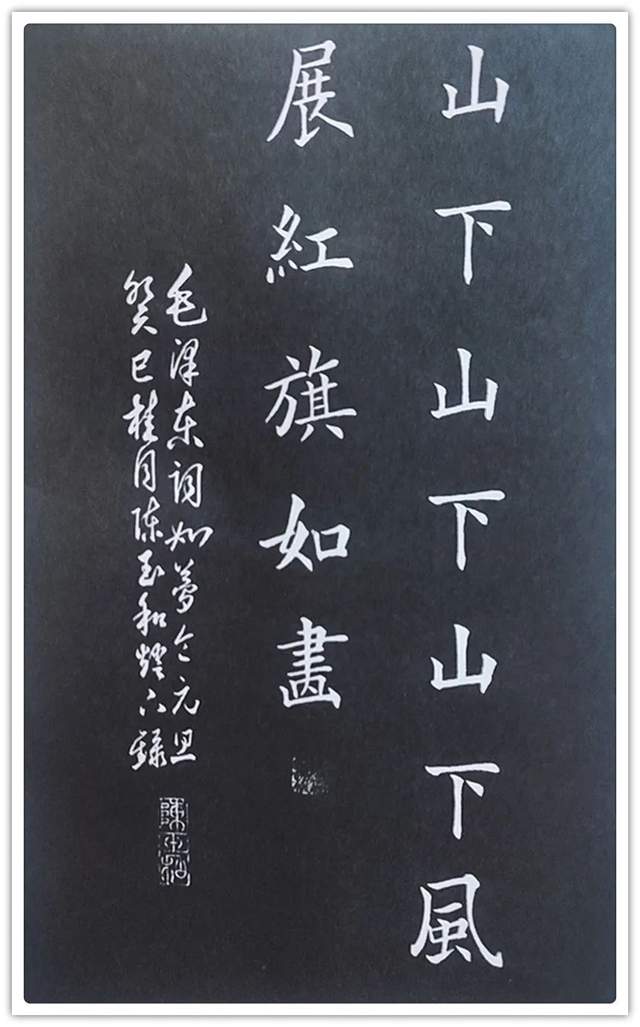 山下山下山下風
展紅旗如畫
毛泽东词如夢令元旦
癸巳桂月陈玉和燈下録
陳玉和